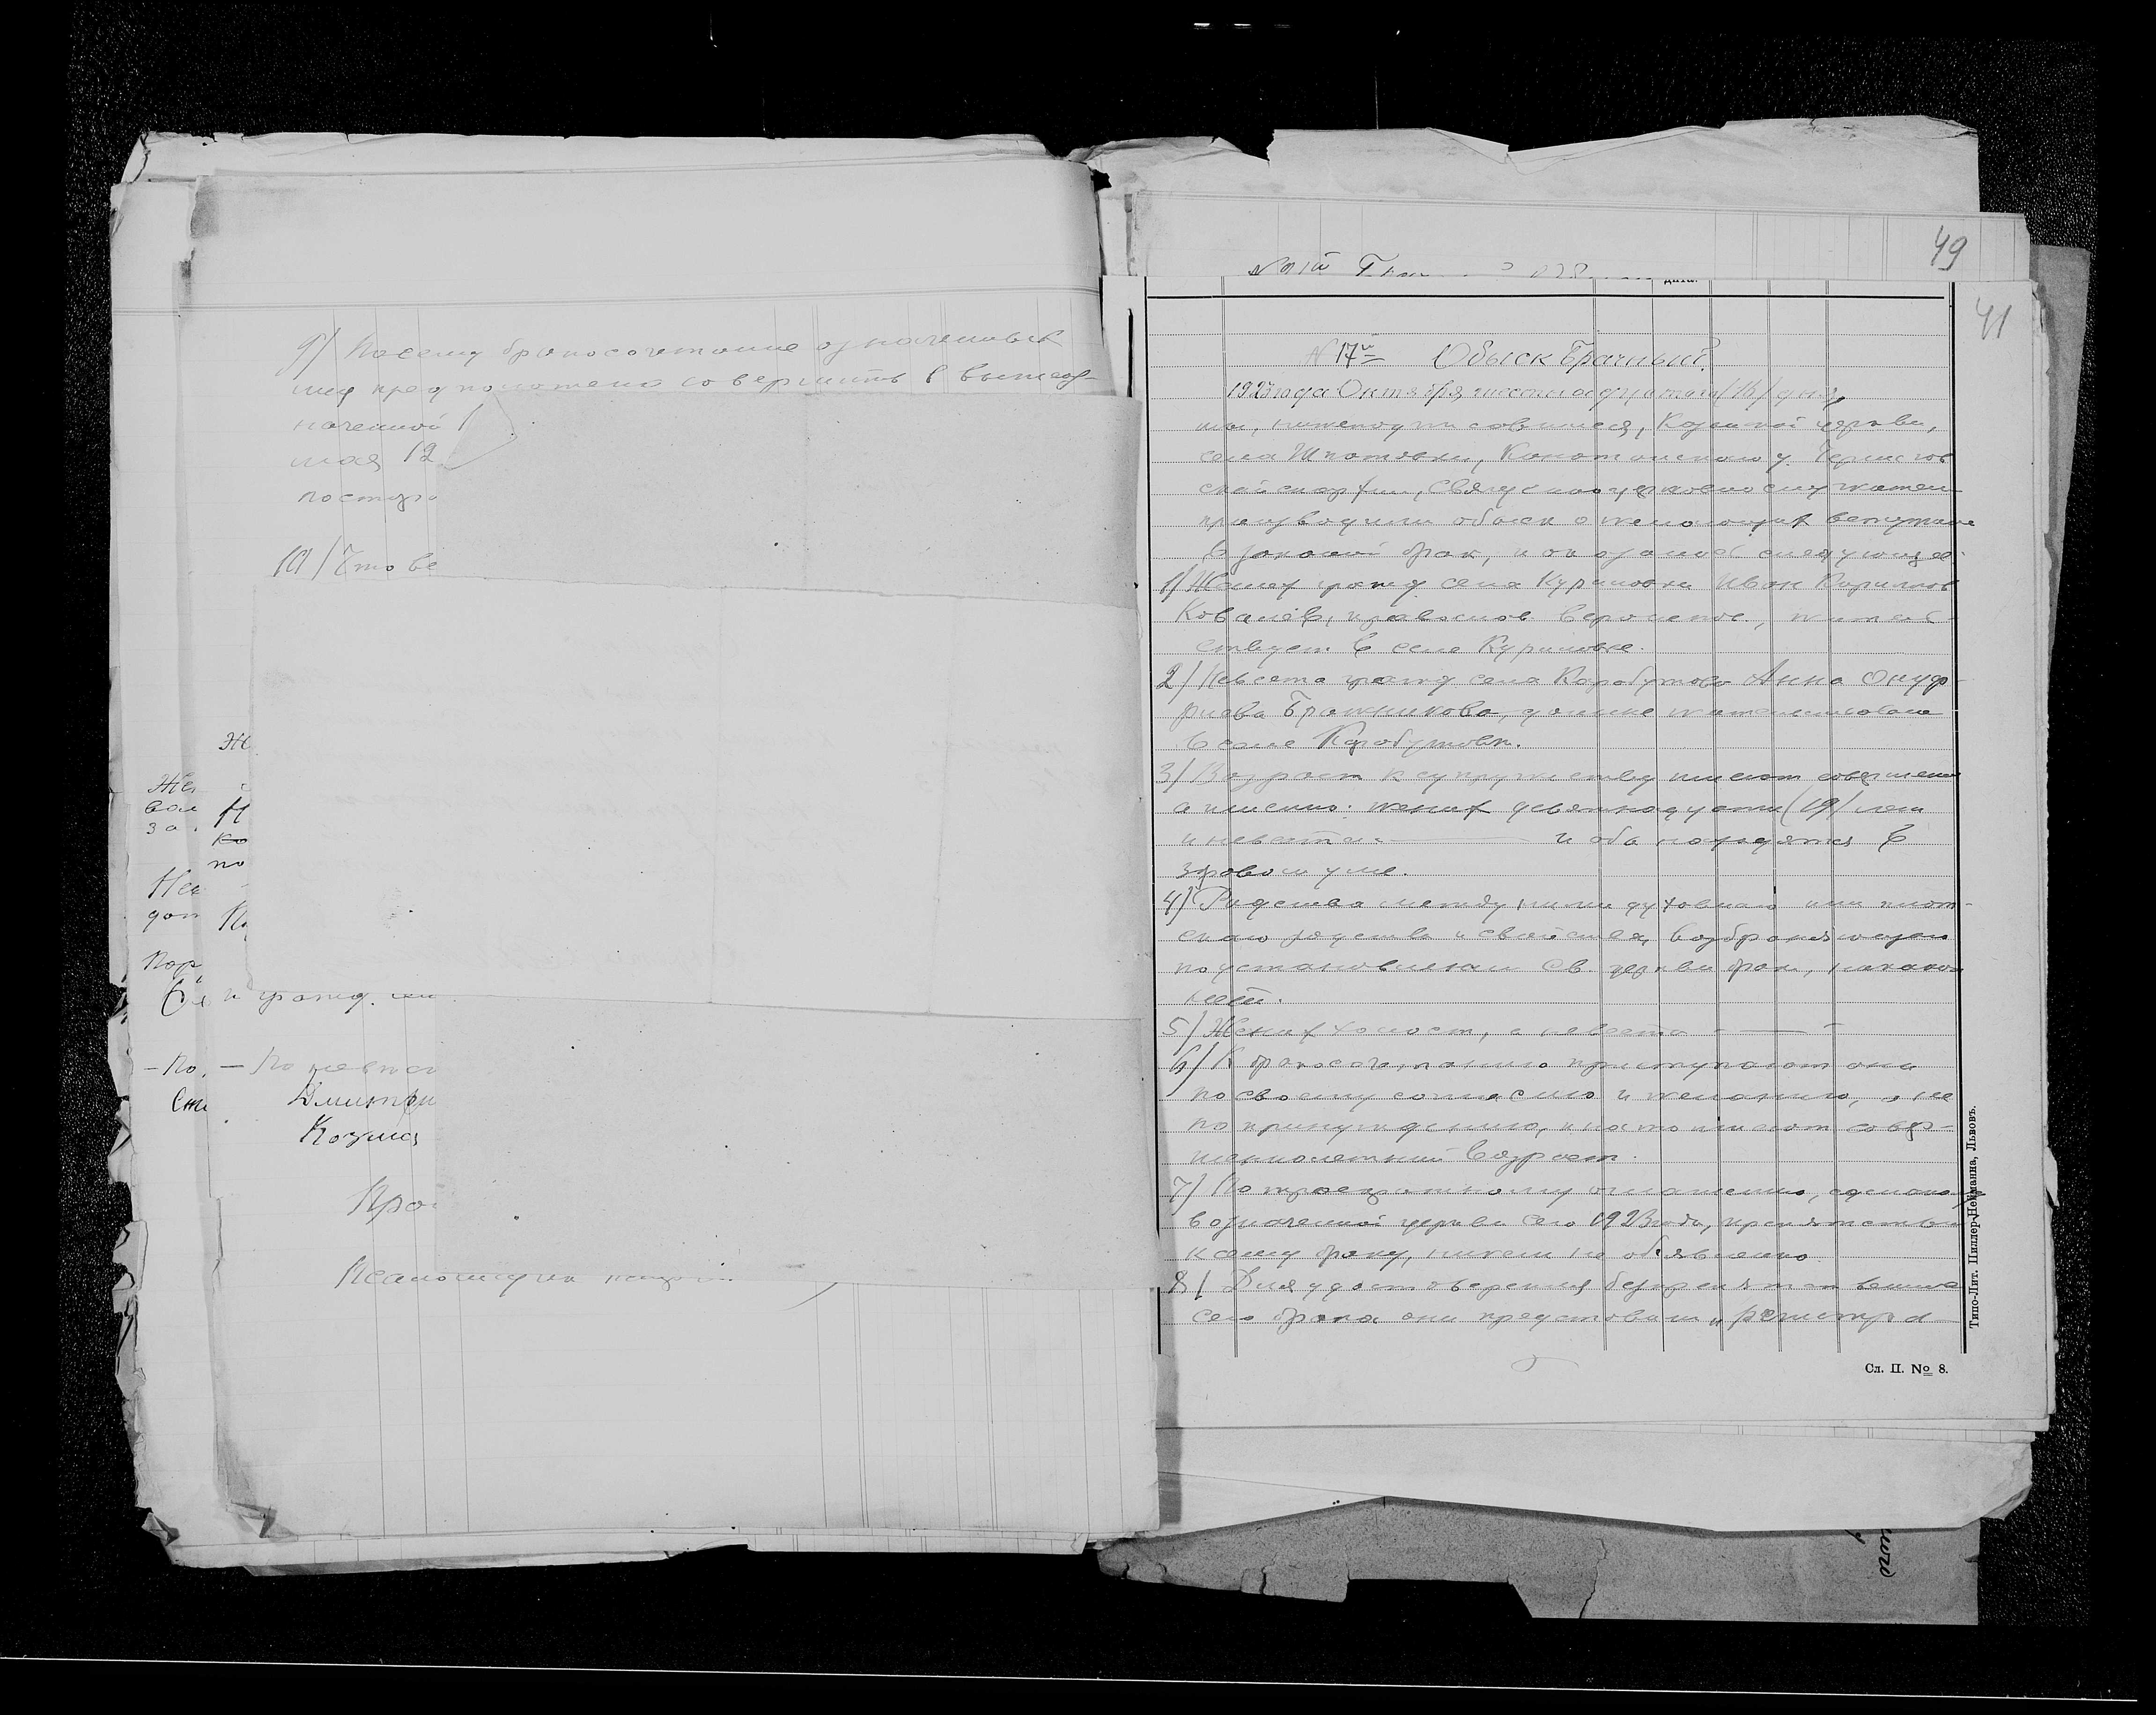 9/ Посему бракосочетание означенных
лиц предположено совершить в вышеоз-
наченной
мая 12
постуро
10/ Что ве
Же
вол
за
Н
ко
по
Нев
дот
По
Пор
и гражд.
- По.
- По невест
Дмитри
Козма
Про
49
41
N 17й Обыск Брачный.
1923 года Октября шестнадцатого /16/ дня,
мы, нижеподписавшиеся, Козминой церкви,
села Шпотовки, Конотопского у. Чернигов
ской епархии, священноцерковнослужители
производили обыск о желающих вступить
в законный брак, и оказалось следующее:
1/ Жених гражд. села Куриловки Иван Кирилов
Ковалёв, православ. вероисков., житель-
ствует в селе Куриловке.
2/ Невеста гражд. села Каробутово Анна Онуф-
риева Бражникова, доныне жительствовала
в селе Коробутовк.
3/ Возраст к супружеству имеют совершенно
а именно: жених девятнадцати (19) лет
и невеста: — и оба находятся в
здравом уме.
4/ Родства между ними духовнаго или плот-
скаго родства и свойства, возбраняющаго
по установлению св. церкви брак, никакого
нет.
5/ Жених холост, а невеста - — -
6/ К бракосочетанию приступают они
по своему согласию и желанию, а не
по принуждению, и на то имеют совер-
шеннолетний возраст.
7/ По троекратному оглашению, сделаному
в означенной церкви сего 1923 года, препятствий
к сему браку, никем не объявлено.
8/ Для удостоверения безпрепятственности
сего брака они представили „регистра
Типо-Лит. Пиллер-Неймана, Львовъ.
Сл. II. № 8.